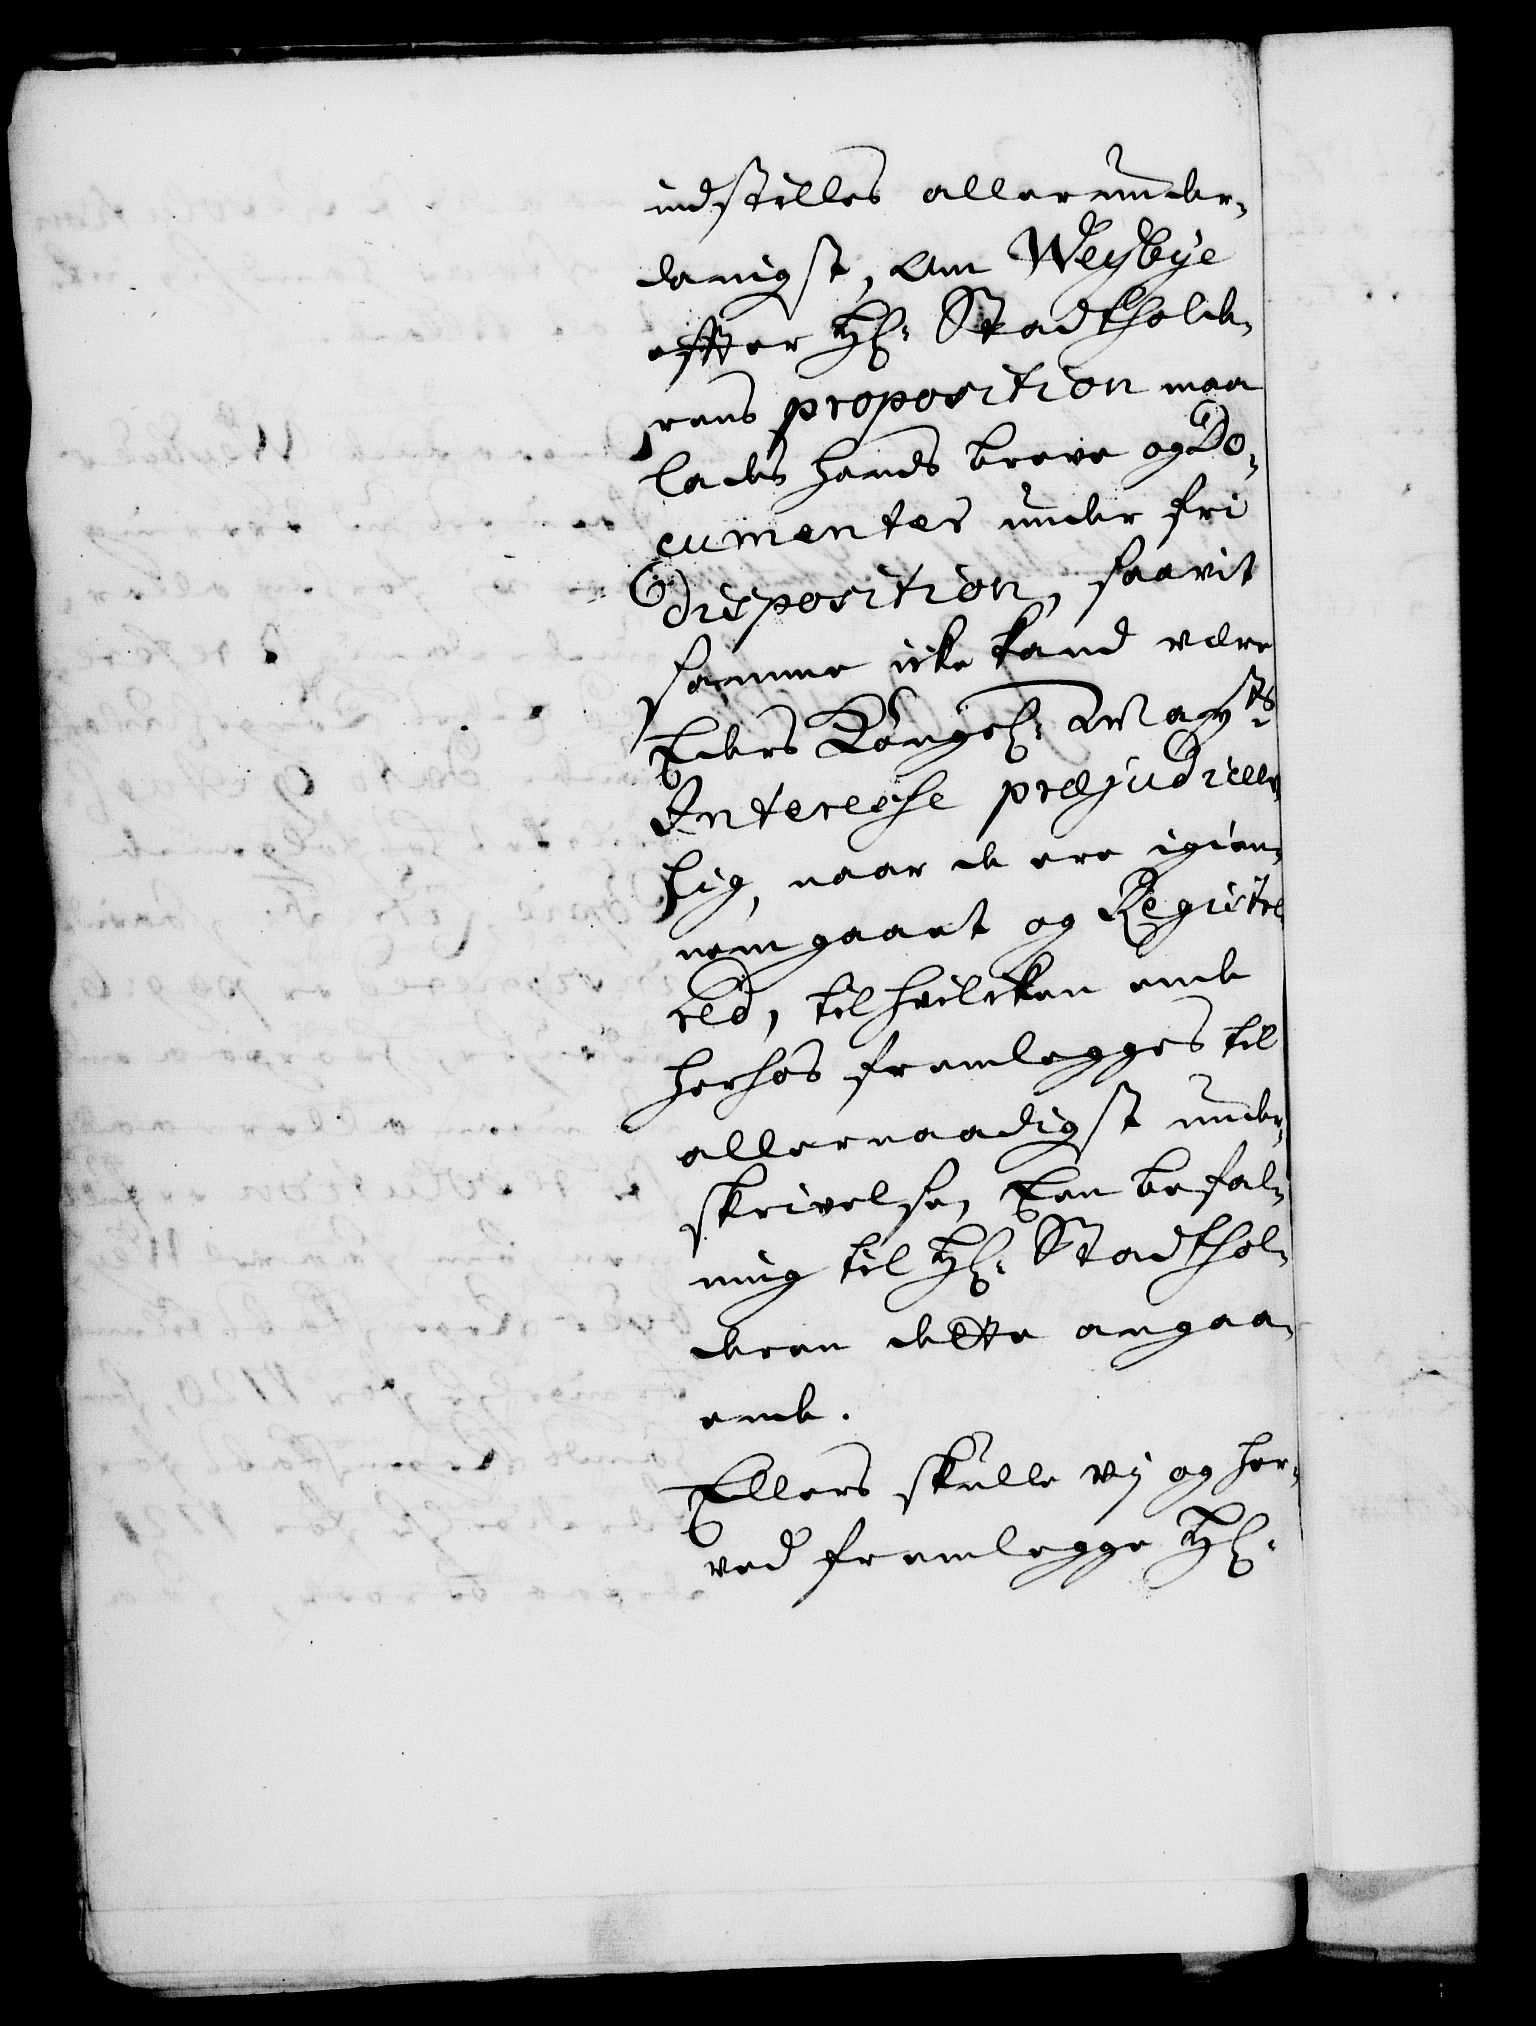 indstilles allerunder-
danigst, om Weybye
effter H: Stadtholde-
rens proposition maa
lades hands breve og Do-
cumenter under fri
Disposition, saavit
samme icke kand være
Eders Kongel: Mayts
Interesse præjudicer-
lig, naar de ere igien-
nemgaaet og Registre
red, til hvilcken ende
herhos fremlegges til
allernaadigst under-
skrivelse, Een befal-
ning til H: Stadthol-
deren dette angaa-
ende.
Ellers skulle vij og her-
ved fremlegge H: